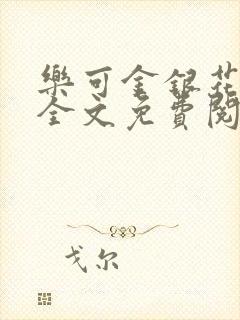 樂可金銀花
全文免費閱
戈尔